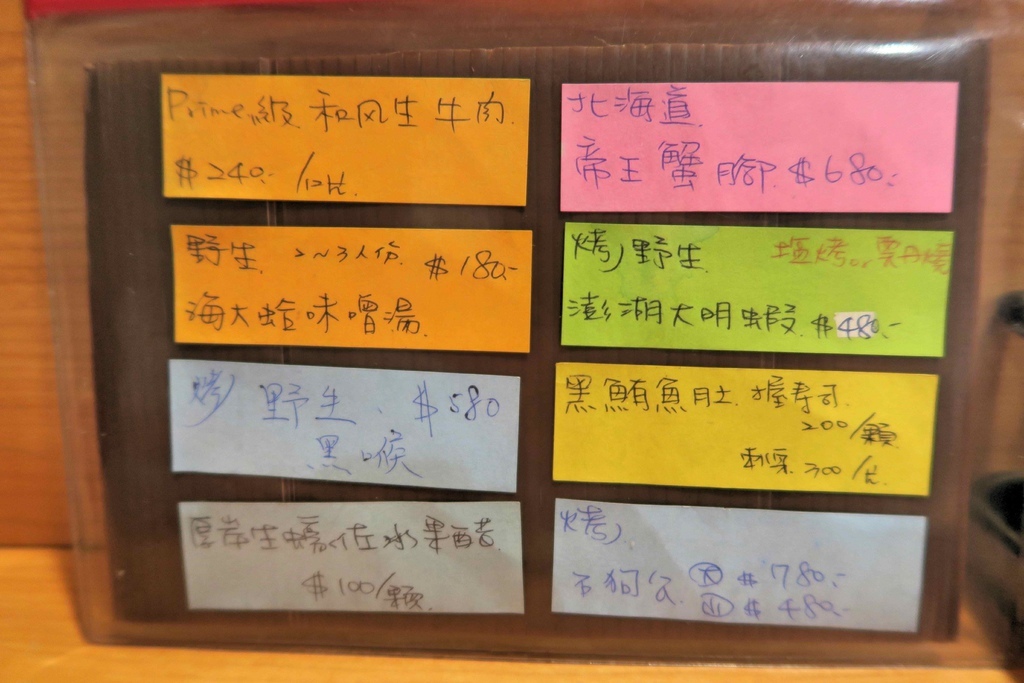 Prime級 和风生牛肉
$240.- /12片
野生 2~3人份 $180.-
海大蛤味噌湯
烤) 野生. $580
黑喉
厚岸生蠔佐水果醋
$100/顆
北海道
帝王蟹腳 $680.-
烤) 野生 塩烤or雲丹燒
澎湖大明蝦 $480.-
黑鮪魚肚. 握壽司
200/顆
刺身 300/片
烤)
石狗公 大 $780.-
小 $480.-